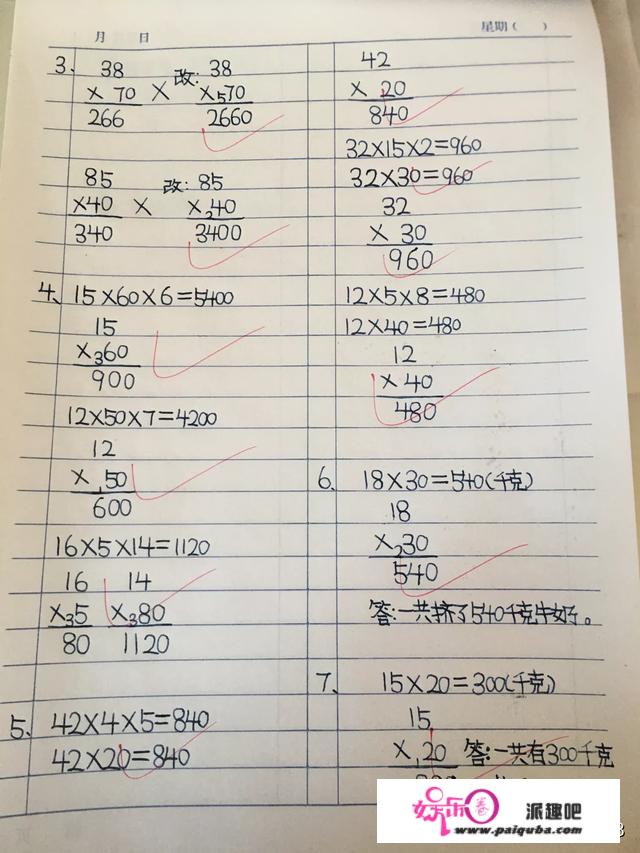 月 日
星期( )
3、 38 改: 38
× 70 × ×₅70
266 2660
85 改: 85
×40 × ×₂40
340 3400
4、 15×60×6=5400
15
×₃60
900
12×50×7=4200
12
×₁50
600
16×5×14=1120
16 14
×₃5 ×₃80
80 1120
5、 42×4×5=840
42×20=840
42
× 20
840
32×15×2=960
32×30=960
32
× 30
960
12×5×8=480
12×40=480
12
× 40
480
6、 18×30=540(千克)
18
×₂30
540
答:一共挤了540千克牛奶。
7、 15×20=300(千克)
15
×₁20 答:一共有300千克
娱乐圈 派趣吧
www.paiquba.com